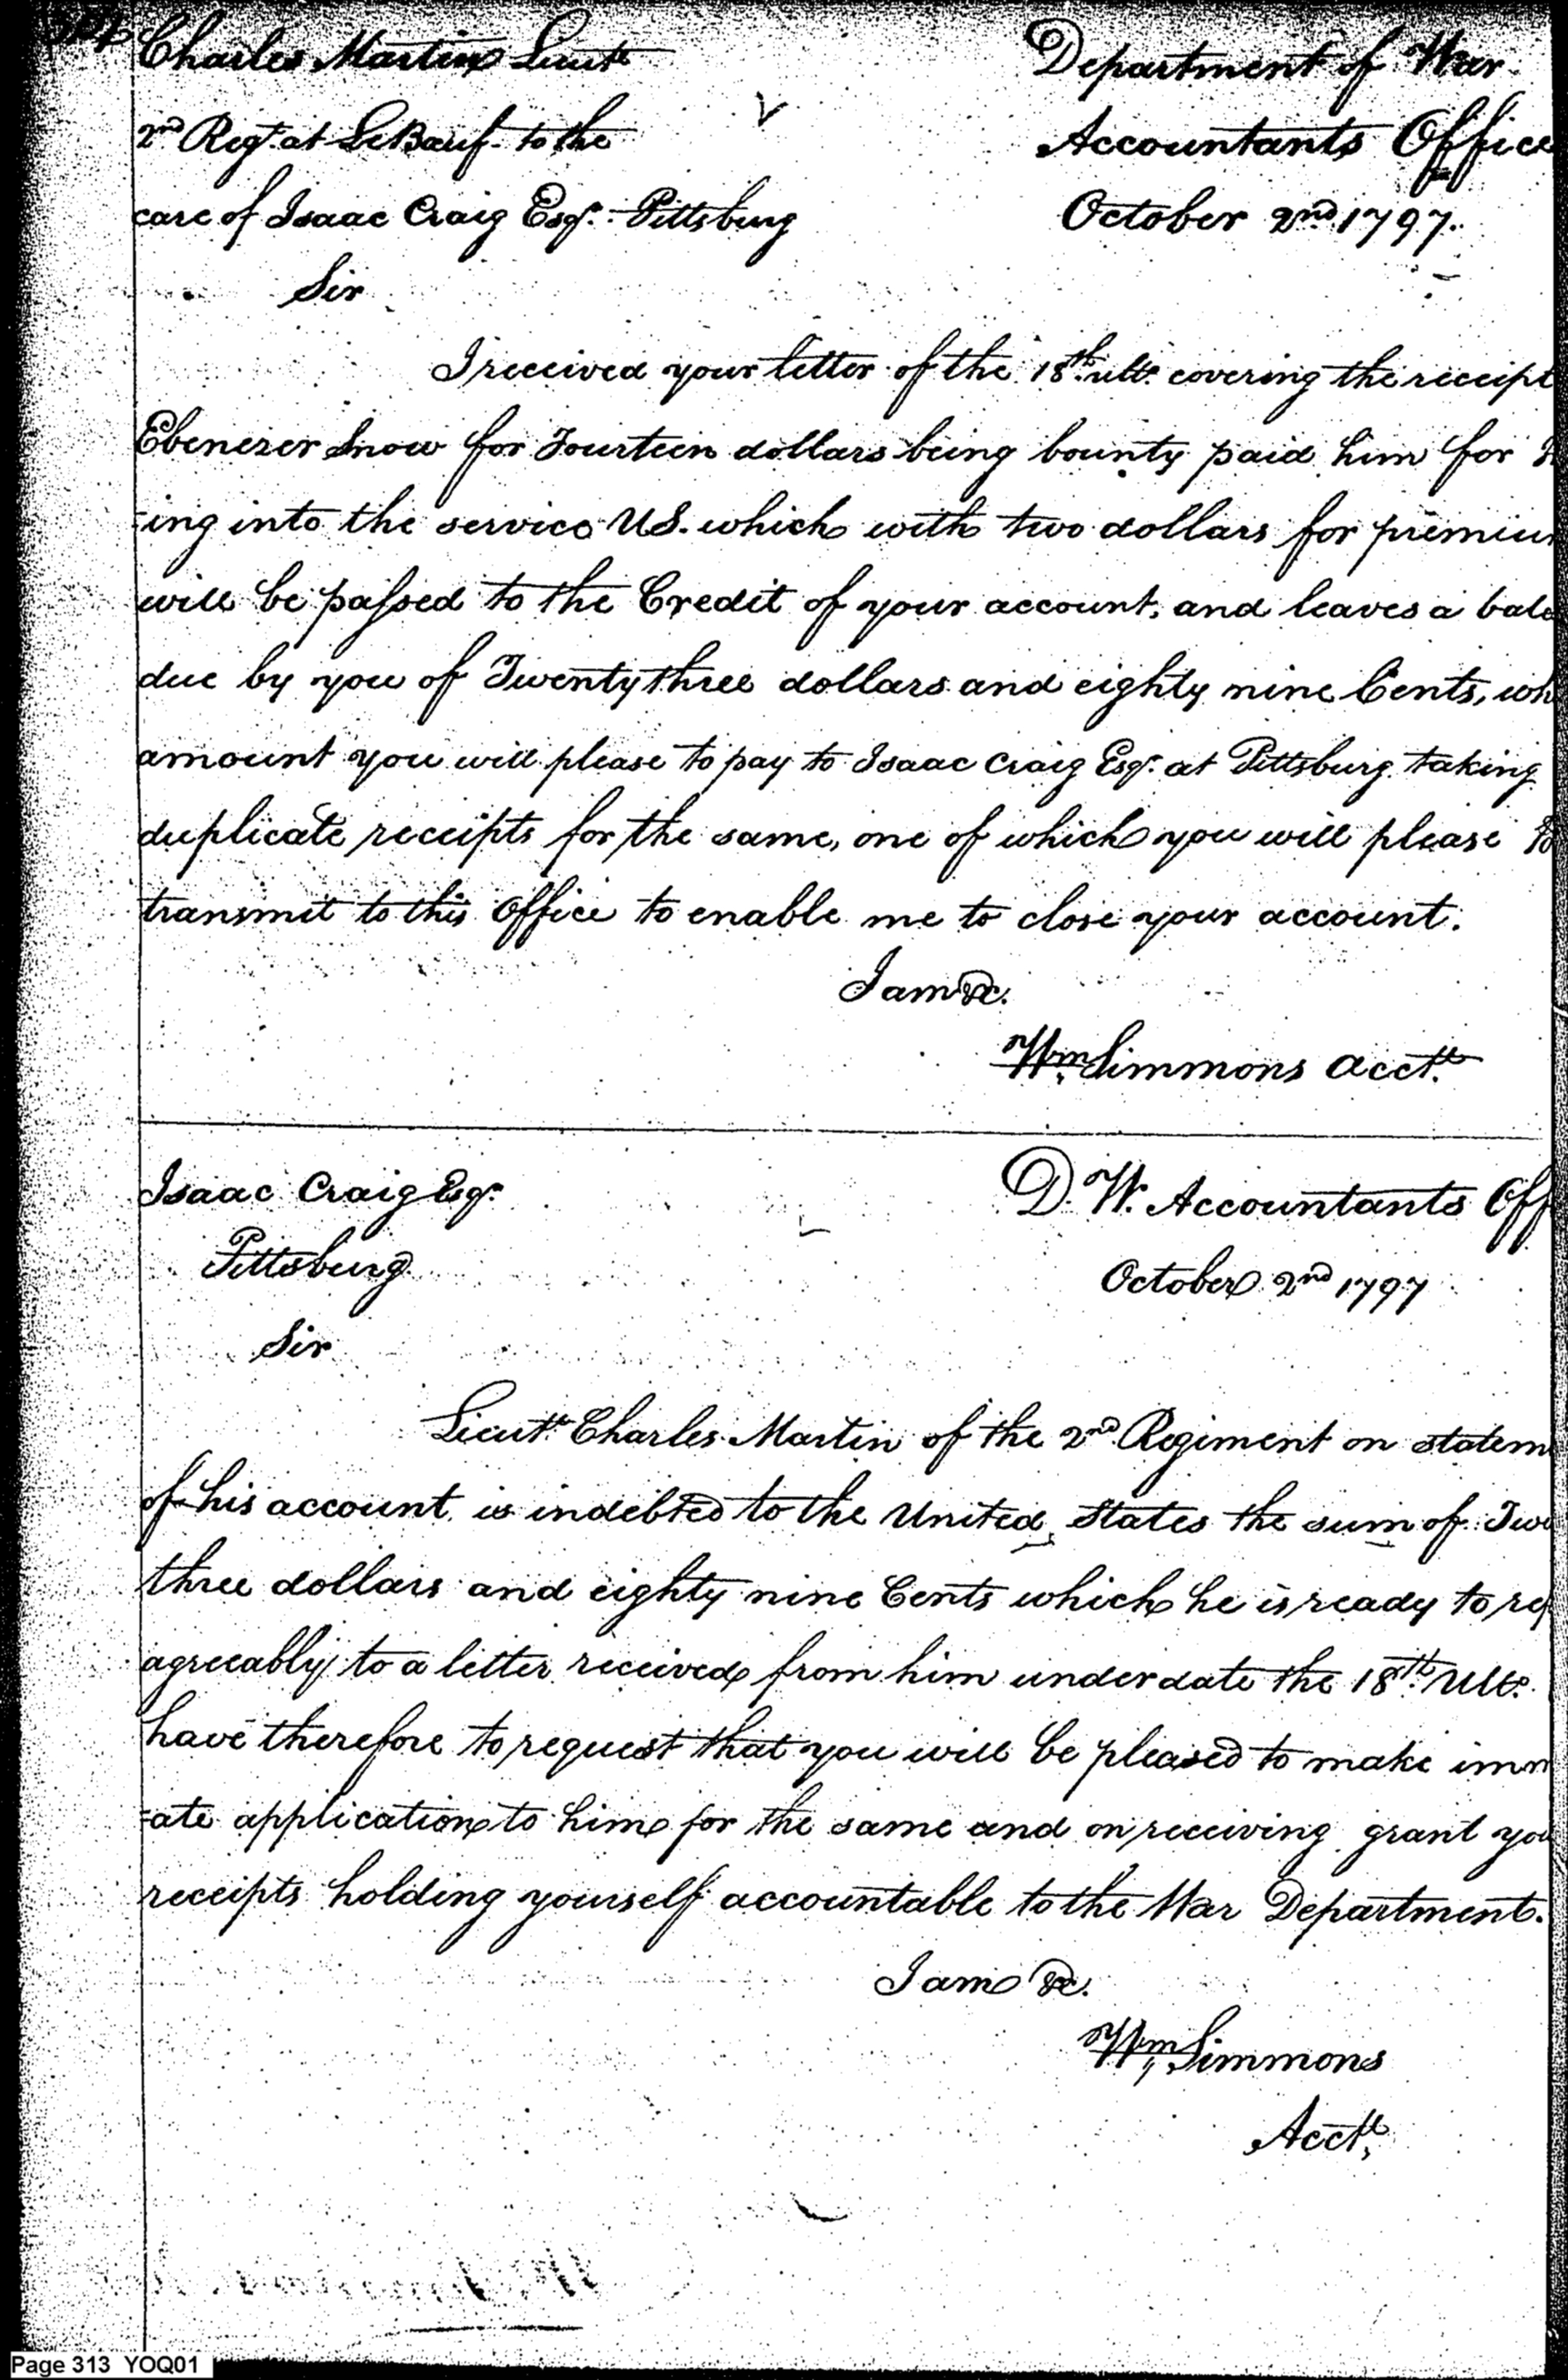 Charles Martin Lieut.
Department of War
2nd Regt. at LeBauf to the
Accountants Office
care of Isaac Craig Esqr. Pittsburg
October 2nd 1797.
Sir
I received your letter of the 18th. ulto. covering the receipt
Ebenezer Snow for Fourteen dollars being bounty paid him for
-ing into the service US. which with two dollars for premium
will be passed to the Credit of your account, and leaves a bala
due by you of Twenty three dollars and eighty nine Cents, wh
amount you will please to pay to Isaac Craig Esqr. at Pittsburg taking
duplicate receipts for the same, one of which you will please to
transmit to this Office to enable me to close your account.
I am &c.
Wm. Simmons Acctt.
Isaac Craig Esqr.
D. W. Accountants Off
Pittsburg
October 2nd 1797
Sir
Lieutt. Charles Martin of the 2nd Regiment on statem
of his account is indebted to the United States the sum of Twe
three dollars and eighty nine Cents which he is ready to re
agreeably to a letter received from him under date the 18th. Ulto.
have therefore to request that you will be pleased to make imm
-ate application to him for the same and on receiving grant you
receipts holding yourself accountable to the War Department.
I am &c.
Wm Simmons
Acctt.
Page 313 YOQ01